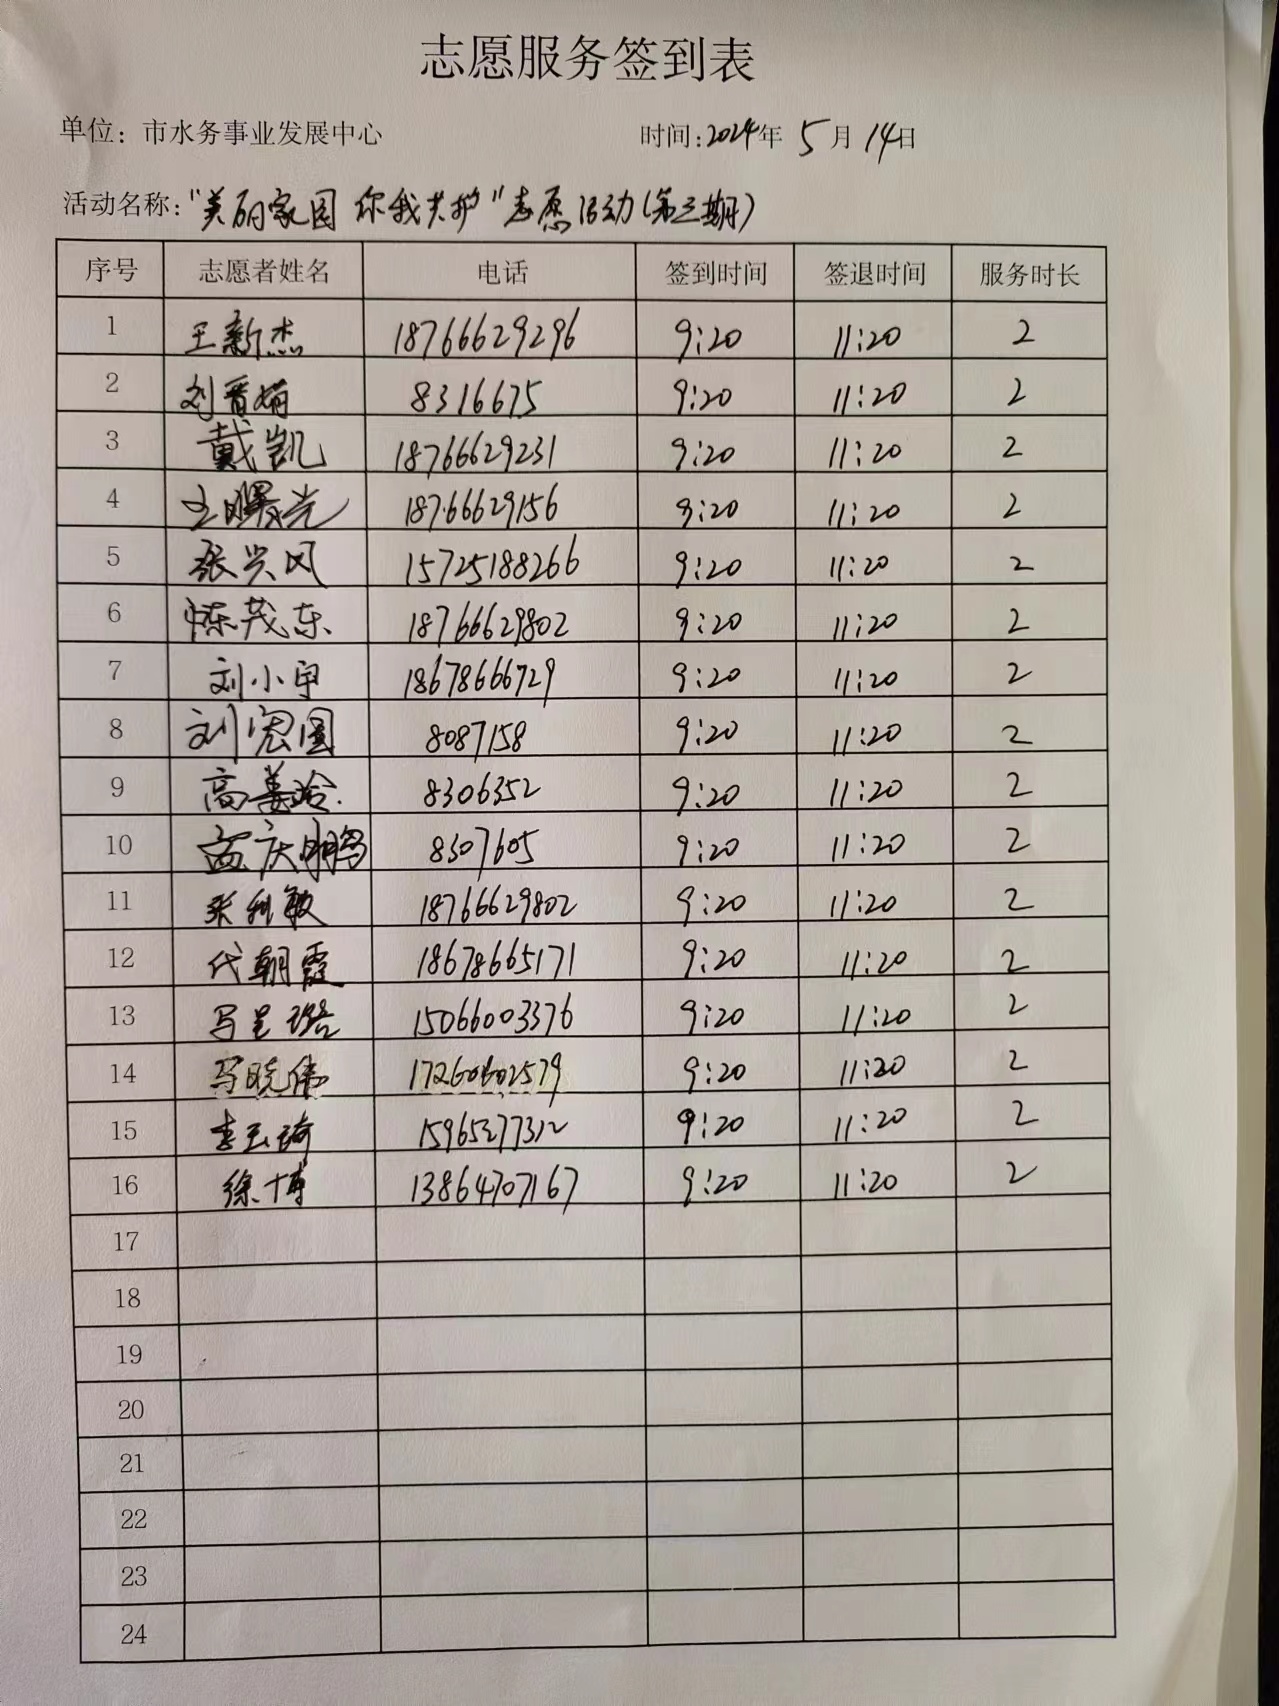 志愿服务签到表
单位：市水务事业发展中心 时间:2024年 5月14日
活动名称:"美丽家园 你我共护"志愿活动(第三期)
序号 志愿者姓名 电话 签到时间 签退时间 服务时长
1 王新杰 18766629296 9:20 11:20 2
2 刘晋娟 8316675 9:20 11:20 2
3 戴凯 18766629231 9:20 11:20 2
4 王曙光 18766629156 9:20 11:20 2
5 张兴风 15725188266 9:20 11:20 2
6 陈茂东 18766629802 9:20 11:20 2
7 刘小宇 18678666729 9:20 11:20 2
8 刘宏图 8087158 9:20 11:20 2
9 高姜玲 8306352 9:20 11:20 2
10 孟庆鹏 8307605 9:20 11:20 2
11 张利敏 18766629802 9:20 11:20 2
12 代朝霞 18678665171 9:20 11:20 2
13 马呈璐 15066003376 9:20 11:20 2
14 马晓伟 17260602579 9:20 11:20 2
15 李玉琦 15965277312 9:20 11:20 2
16 徐博 13864707167 9:20 11:20 2
17
18
19
20
21
22
23
24